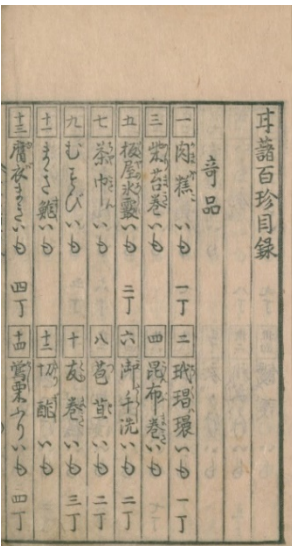 甘藷百珍目録
奇品
一 肉糕いも 一丁 二 玳瑁環いも 一丁
三 紫苔巻いも 四 昆布巻いも
五 氷霰いも 二丁 六 御手洗いも 二丁
七 茶巾いも 八 苞苴いも 二丁
九 むすびいも 十 友巻いも 三丁
十一 いも 十二 切鮓いも
十三 衣まきいも 四丁 十四 罌粟ふりいも 四丁